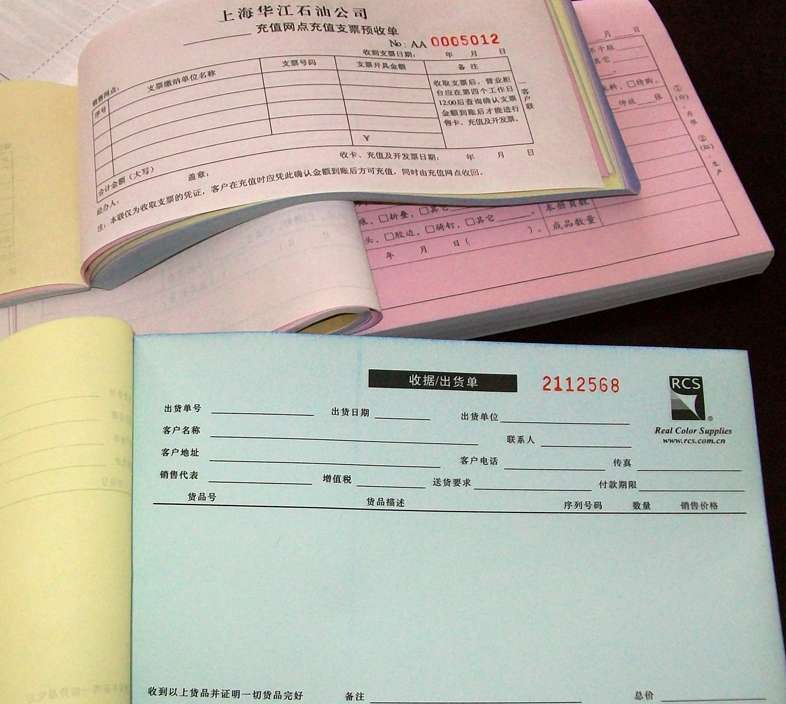 上海华江石油公司
充值网点充值支票预收单
No: AA 0005012
收到支票日期: 年 月 日
收费网点:
序号 支票缴纳单位名称 支票号码 支票开具金额 备注
收取支票后，营业柜
台应在第四个工作日
12:00后查询确认支票
金额到账后才能进行
售卡、充值及开发票。
客户联
¥
合计金额（大写）
收卡、充值及开发票日期: 年 月 日
经办人: 盖章:
注: 本联仅为收取支票的凭证，客户在充值时应凭此确认金额到账后方可充值，同时由充值网点收回。
月 日
其它
张
①
②
□折叠，□其它
本册页数
头，□胶边，□骑钉，□其它 。
成品数量
年 月 日( )。
收据/出货单
2112568
RCS
®
Real Color Supplies
www.rcs.com.cn
出货单号 出货日期 出货单位
客户名称 联系人
客户地址 客户电话 传真
销售代表 增值税 送货要求 付款期限
货品号 货品描述 序列号码 数量 销售价格
收到以上货品并证明一切货品完好 备注 总价